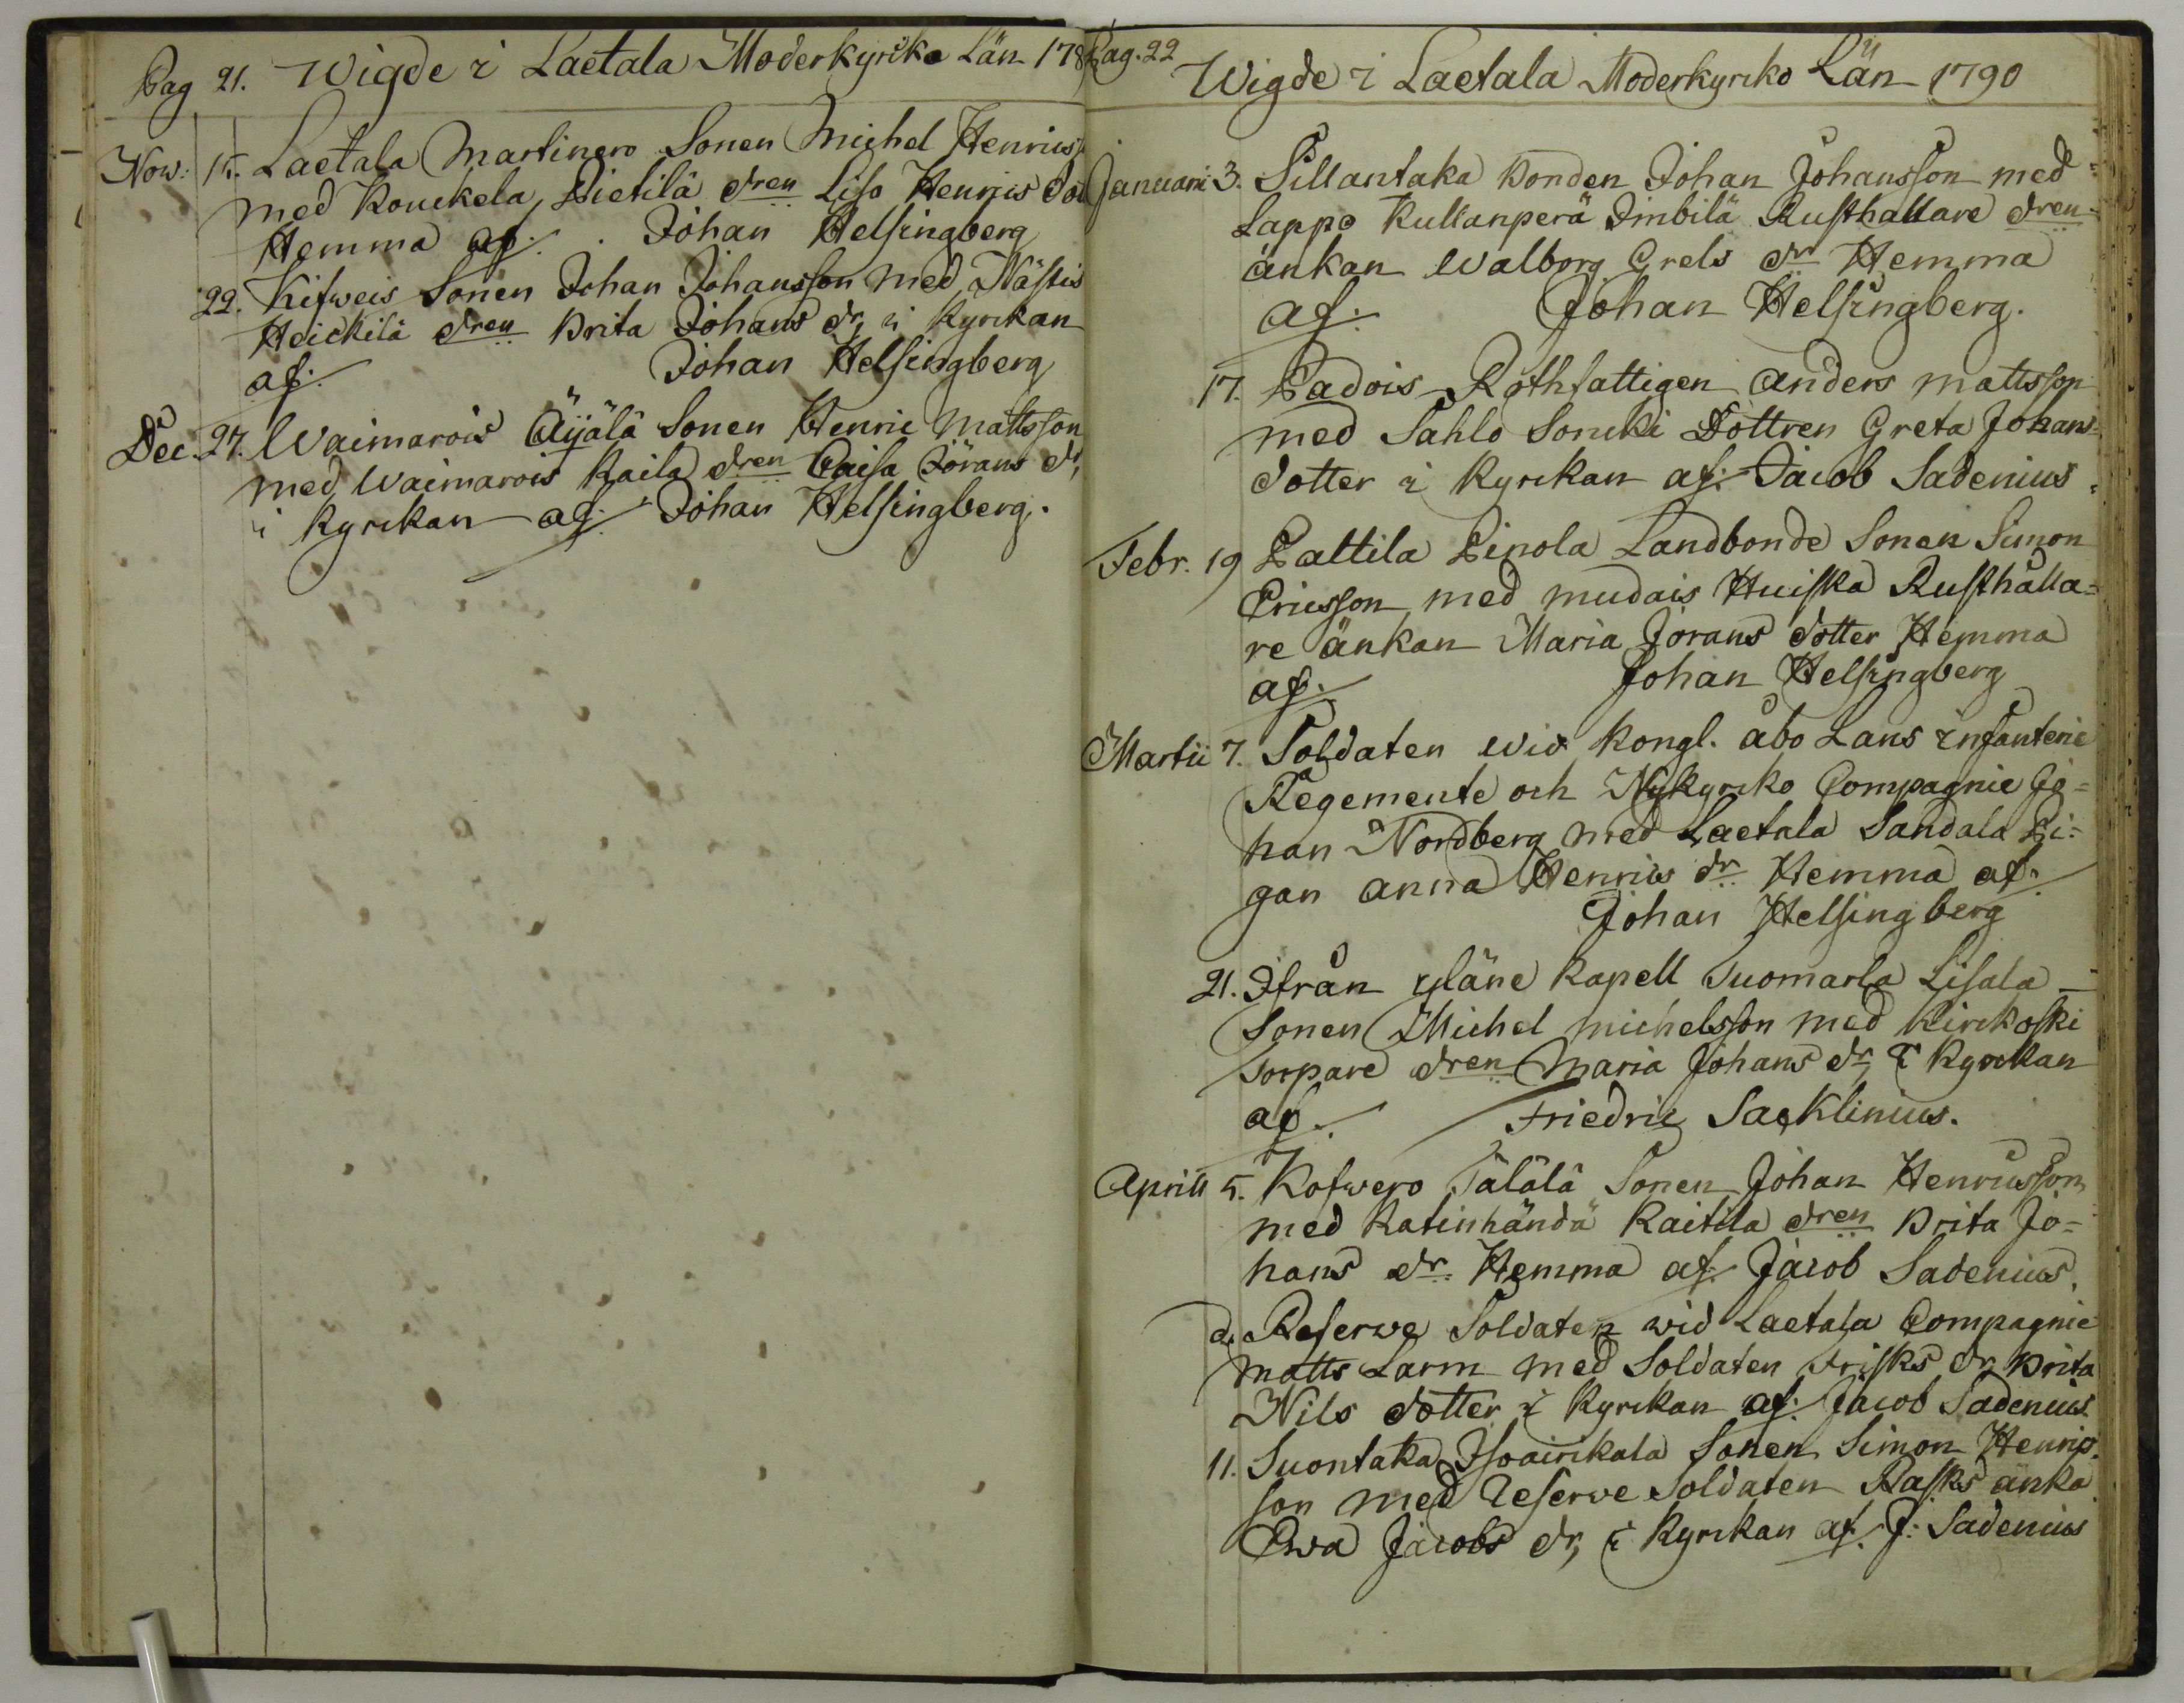 Pag 21. Wigde i Laetala Moderkyrko Län 178
Now: 15. Laetala Martinero Sonen Michel Henrics
med Kouckela Pietilä dren Lisa Henrics do
Hemma af. Johan Helsingberg
22. Kifweis Sonen Johan Johansson med Nästis
Heickilä dren Brita Johans dr, i Kyrckan
af. Johan Helsingberg
Dec. 27. Waimarois Äijälä Sonen Henric Mattsson
med Waimarois Kaila dren Caisa Jörans dr,
i Kyrckan af. Johan Helsingberg.
Pag. 22
Wigde i Laetala Moderkyrko Län 1790
Januarii 3. Sillantaka Bonden Johan Johansson med
Lappo Kullanperä Simbilä Rusthållare dren
änkan Walborg Grels dr Hemma
af. Johan Helsingberg.
17. Padois Rothfattigen Anders Mattsson
med Sahlo Soncki Dottren Greta Johans=
dotter i Kyrckan af. Jacob Sadenius.
Febr. 19 Pattila Pinola Landbonde Sonen Simon
Ericsson med Mudais Huiska Rusthålla=
re änkan Maria Jörans dotter Hemma
af. Johan Helsingberg
Martii 7. Soldaten wid Kongl. Åbo Läns infanterie
Regemente och Nykyrcko Compagnie Jo=
han Nordberg med Laetala Sandala Pi=
gan Anna Henrics dr Hemma af.
Johan Helsingberg
21. Ifrån Yläne Kapell Suomarla Lisala
Sonen Michel Michelsson med Kirckoski
Torpare dren Maria Johans dr, i Kyrckan
af. Friedric Sacklinius.
Aprill 5. Kofwero Tälälä Sonen Johan Henricsson
med Katinhändä Kaitila dren Brita Jo=
hans dr. Hemma af. Jacob Sadenius.
d. Reserwe Soldaten wid Laetala Compagnie
Matts Larm med Soldaten Frisks dr, Brita
Nils dotter i Kyrckan af. Jacob Sadenius.
11. Suontaka Isoairikala Sonen Simon Henrics
son med Reserve Soldaten Rasks änka
Ewa Jacobs dr, i Kyrckan af. J: Sadenius